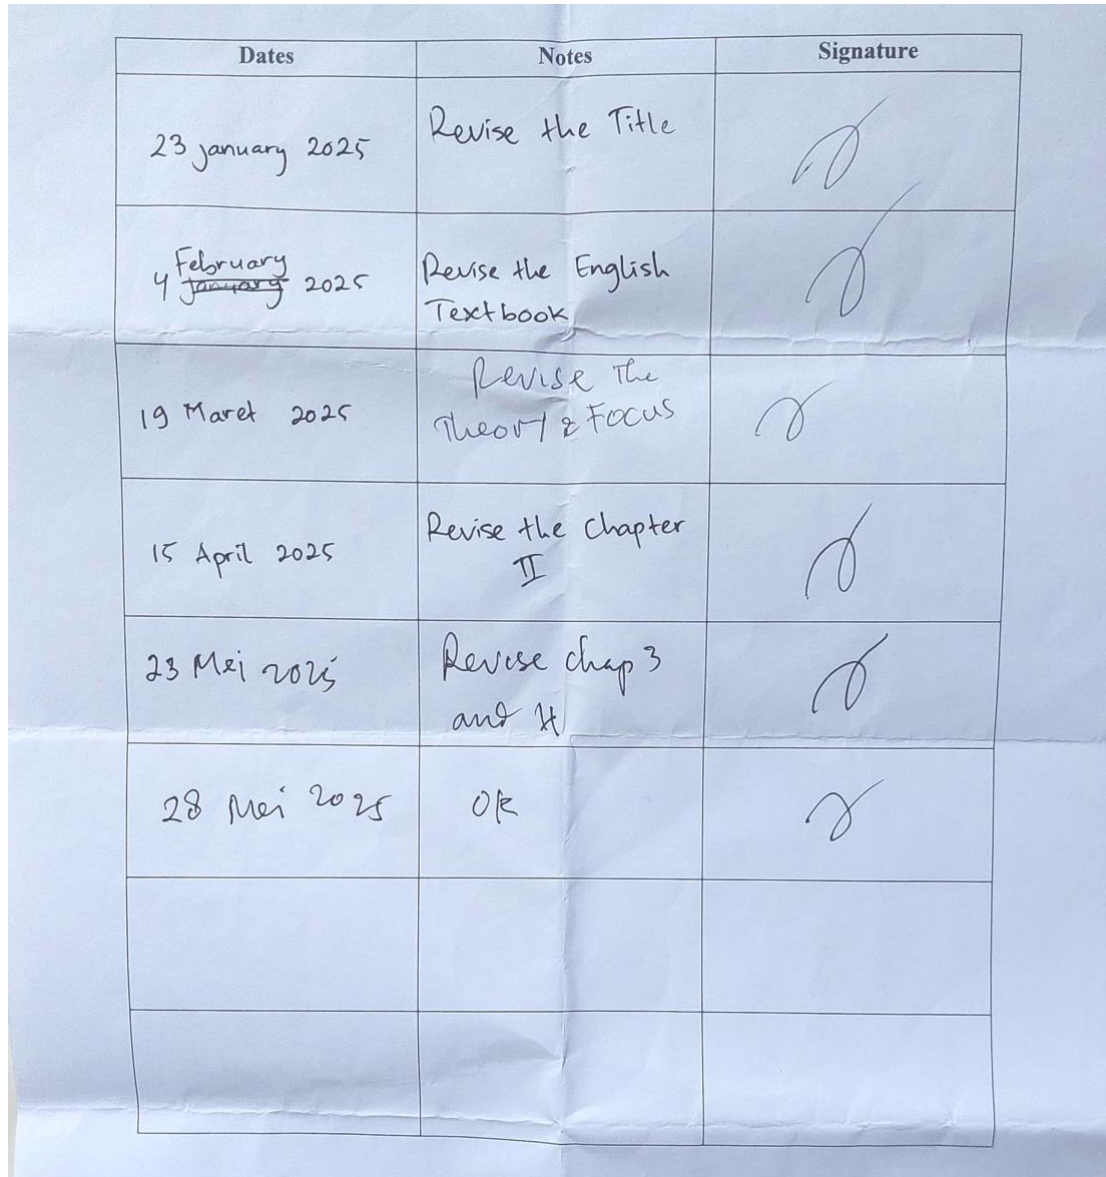 Dates Notes Signature
23 january 2025 Revise the Title
February
4 january 2025 Revise the English
Textbook
Revise The
19 Maret 2025 Theory & Focus
15 April 2025 Revise the Chapter
II
23 Mei 2025 Revise chap 3
and 4
28 Mei 2025 OK